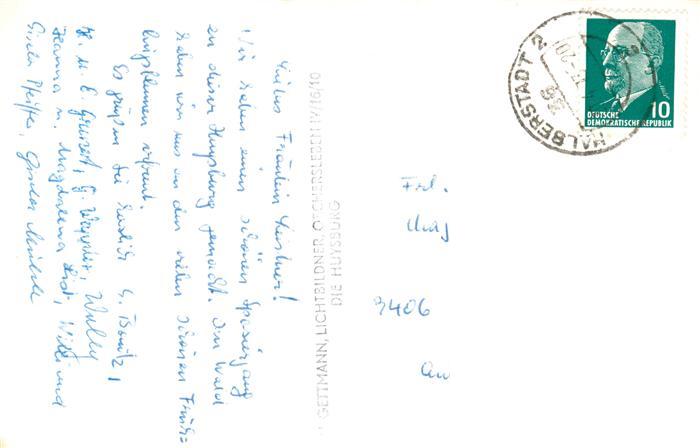 Liebes Fräulein Leistner!
Wir haben einen schönen Spaziergang
zu dieser Huysburg gemacht. Im Wald
haben wir uns an den vielen schönen Früh-
lingsblumen erfreut.
Es grüßen Sie herzlich
H. u. E.
Hanna u. Magdalena Willi und
Pfeiffer,
GETTMANN, LICHTBILDNER, OSCHERSLEBEN IV/16/10
DIE HUYSBURG
HALBERSTADT 2
36
DEUTSCHE
DEMOKRATISCHE REPUBLIK
10
Frl.
3406